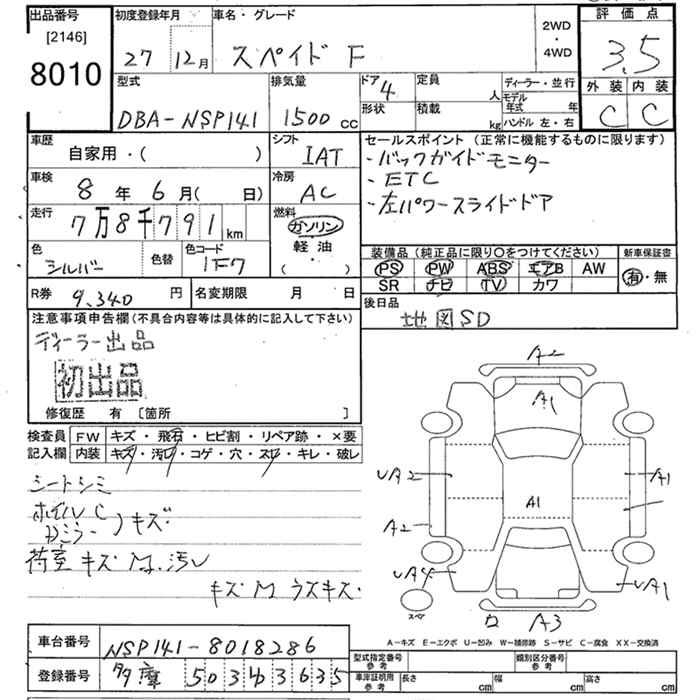 出品番号
[2146]
8010
初度登録年月
27 12月
車名・グレード
スペイド F
2WD
・
4WD
評価点
3.5
外装 内装
C C
型式
DBA-NSP141
排気量
1500 cc
ドア 4
形状
定員 人
積載 kg
ディーラー・並行
モデル年式 年
ハンドル 左・右
車歴
自家用・( )
シフト
IAT
車検
8年 6月( 日)
冷房
AC
走行
7万8千791km
燃料
ガソリン
軽油
( ・ )
色
シルバー
色替
色コード
1F7
R券 9,340 円
名変期限 月 日
セールスポイント (正常に機能するものに限ります)
・バックガイドモニター
・ETC
・左パワースライドドア
装備品 (純正品に限り○をつけてください)
PS PW ABS エアB AW
SR ナビ TV カワ
新車保証書
有・無
後日品
地図SD
注意事項申告欄 (不具合内容等は具体的に記入して下さい)
ディーラー出品
初出品
修復歴 有 〔箇所 〕
検査員記入欄
FW キズ・飛石・ヒビ割・リペア跡・×要
内装 キズ・汚レ・コゲ・穴・スレ・キレ・破レ
シートシミ
ホイルC
Dミラー )キズ
荷室キズM.汚レ
キズM ラスキズ.
A2
A1
UA2
A1
A1
A2
UA4
UA1
スペア
ロ A3
A-キズ E-エクボ U-凹み W-補修跡 S-サビ C-腐食 XX-交換済
車台番号
NSP141-8018286
登録番号
多摩 503 ４3635
型式指定番号
参考
類別区分番号
参考
車庫証明用
参考
長さ cm
幅 cm
高さ cm